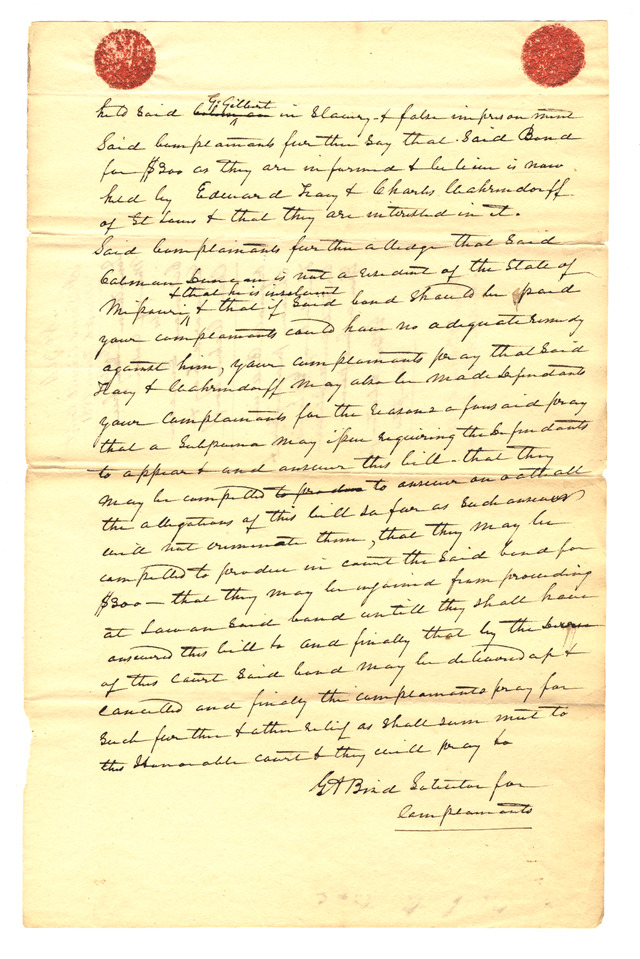 G. Gilbert
held Said Colman in Slavery & false imprisonment
Said Complainants further Say that Said Bond
for $300 as they are informed & believe is now
held by Edward Tracy & Charles Wahrendorff
of St Louis & that they are interested in it.
Said Complainants further alledge that Said
Coleman Duncan is not a resident of the State of
& that he is insolvent
Missouri & that if Said bond Should be paid
your complainants could have no adequate remedy
against him, your complainants pray that Said
Tracy & Wahrendorff may also be made defendants
your Complainants for the reasons aforesaid pray
that a Subpoena may issue requiring the Defendants
to appear & and answer this bill - that they
may be compelled to produce to answer on oath all
the allegations of this bill So far as Such answers
will not criminate them, that they may be
compelled to produce in court the Said bond for
$300 — that they may be injoined from proceeding
at Law on Said bond untill they shall have
answered this bill & and finally that by the Decree
of this Court Said bond may be delivered up &
cancelled and finally the complainants pray for
Such further & other relief as Shall Seem meet to
this Honorable court & they will pray &c
G A Bird Solicitor for
Complainants